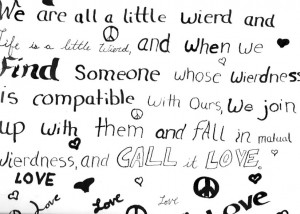 We are all a little wierd and
Life is a little Wierd, and when we
Find Someone whose Wierdness
is compatible with Ours, We join
up with them and fAll in mutual
Wierdness, and CALL it LOVE.
LOVE
Love Love Love Love